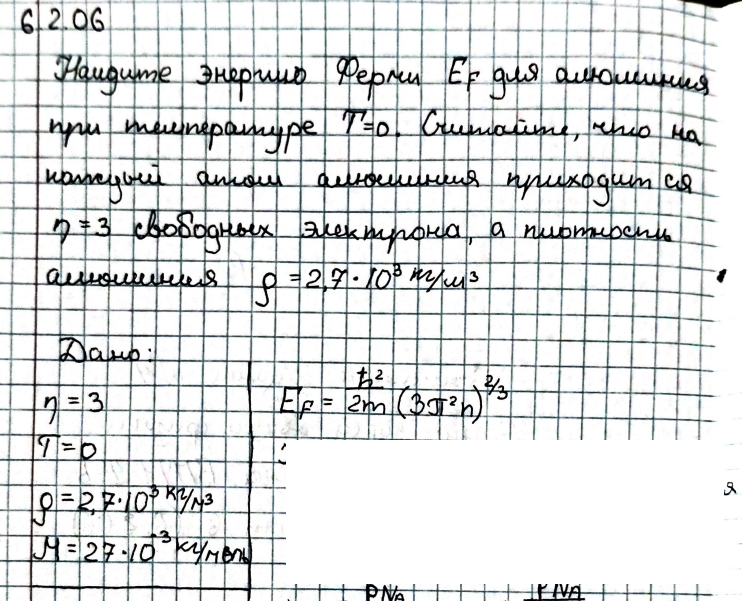 6.2.06
Найдите энергию Ферми E_F для алюминия
при температуре T=0. Считайте, что на
каждый атом алюминия приходится
η=3 свободных электрона, а плотность
алюминия ρ=2,7·10³ кг/м³
Дано:
η=3
E_F = ħ²/2m (3π²n)^2/3
T=0
ρ=2,7·10³ кг/м³
я
M=27·10⁻³ кг/моль
ρN_A ρN_A